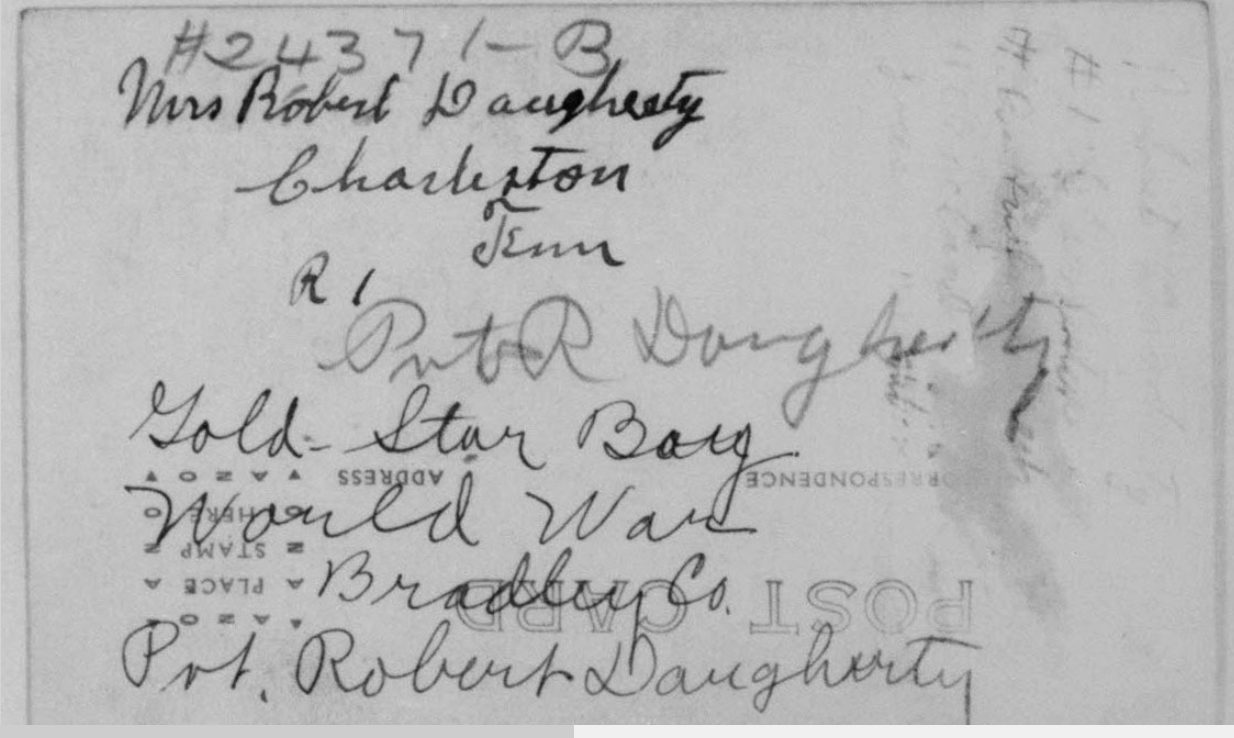 #24371-B
Mrs Robert Daugherty
Charleston
Tenn
R 1
Pvt R Daugherty
Gold-Star Boy
World War
Bradley Co.
Pvt. Robert Daugherty
CORRESPONDENCE
ADDRESS
POST CARD
AZO
PLACE
STAMP
HERE
AZO